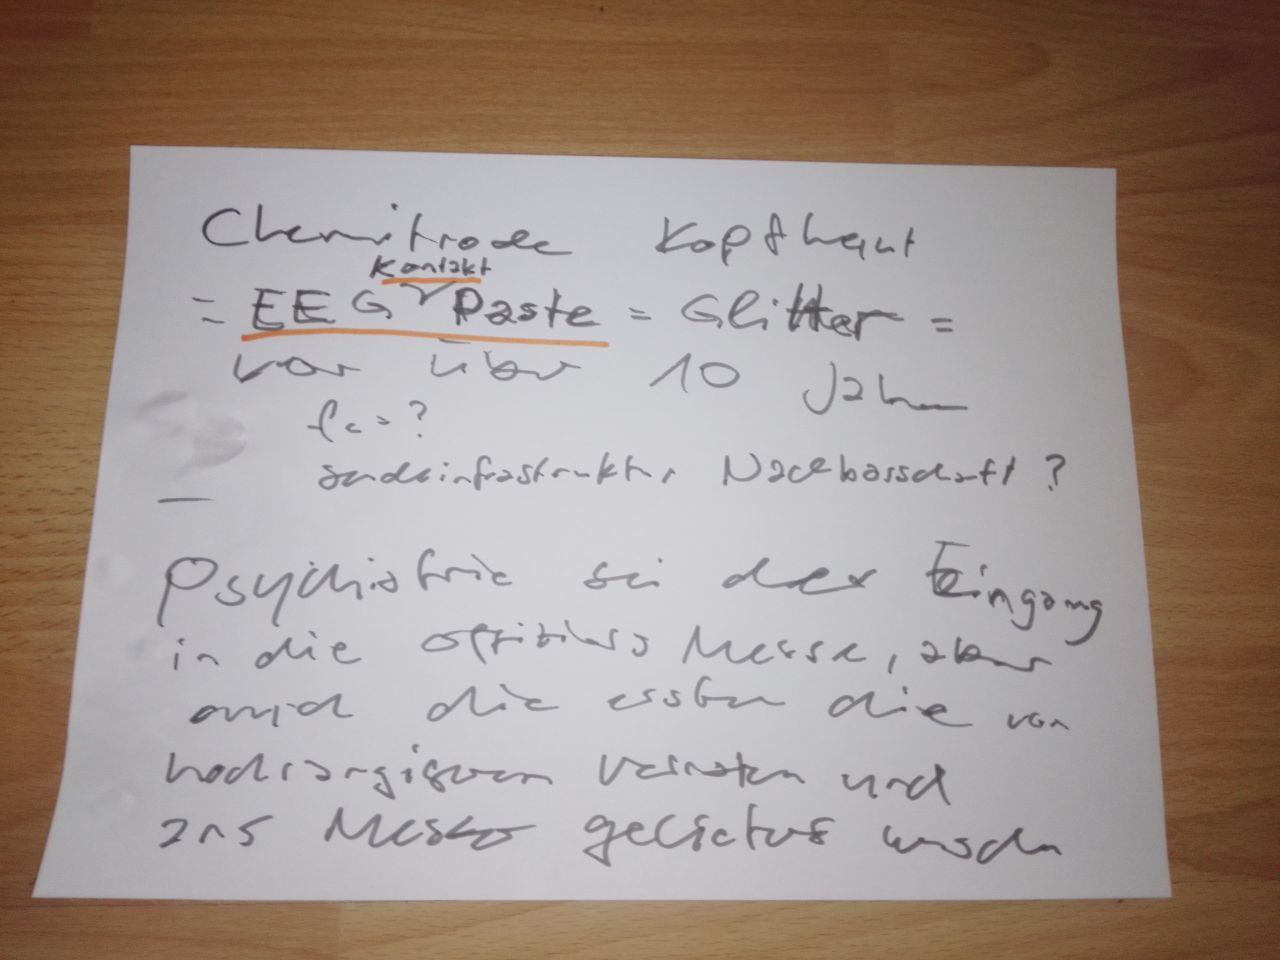 Chemitrode Kopfhaut
Kontakt
= EEG Paste = Glitter =
vor über 10 Jahren
fc = ?
Sendeinfrastruktur, Nachbarschaft ?
—
Psychiatrie sei der Eingang
in die offizielle Messe, aber
auch die ersten die von
hochrangigeren verraten und
ans Messer geliefert wurden